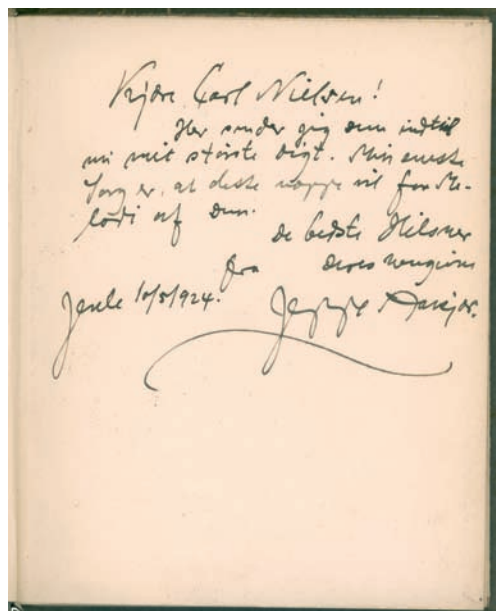 Kjære Carl Nielsen!
Her sender jeg dem indtil
nu mit störste digt. Min eneste
Sorg er, at dette næppe vil faa Me-
lodi af dem.
de bedste Hilsner
fra deres hengivne
Jenle 10/5 1924. Jeppe Aakjær.